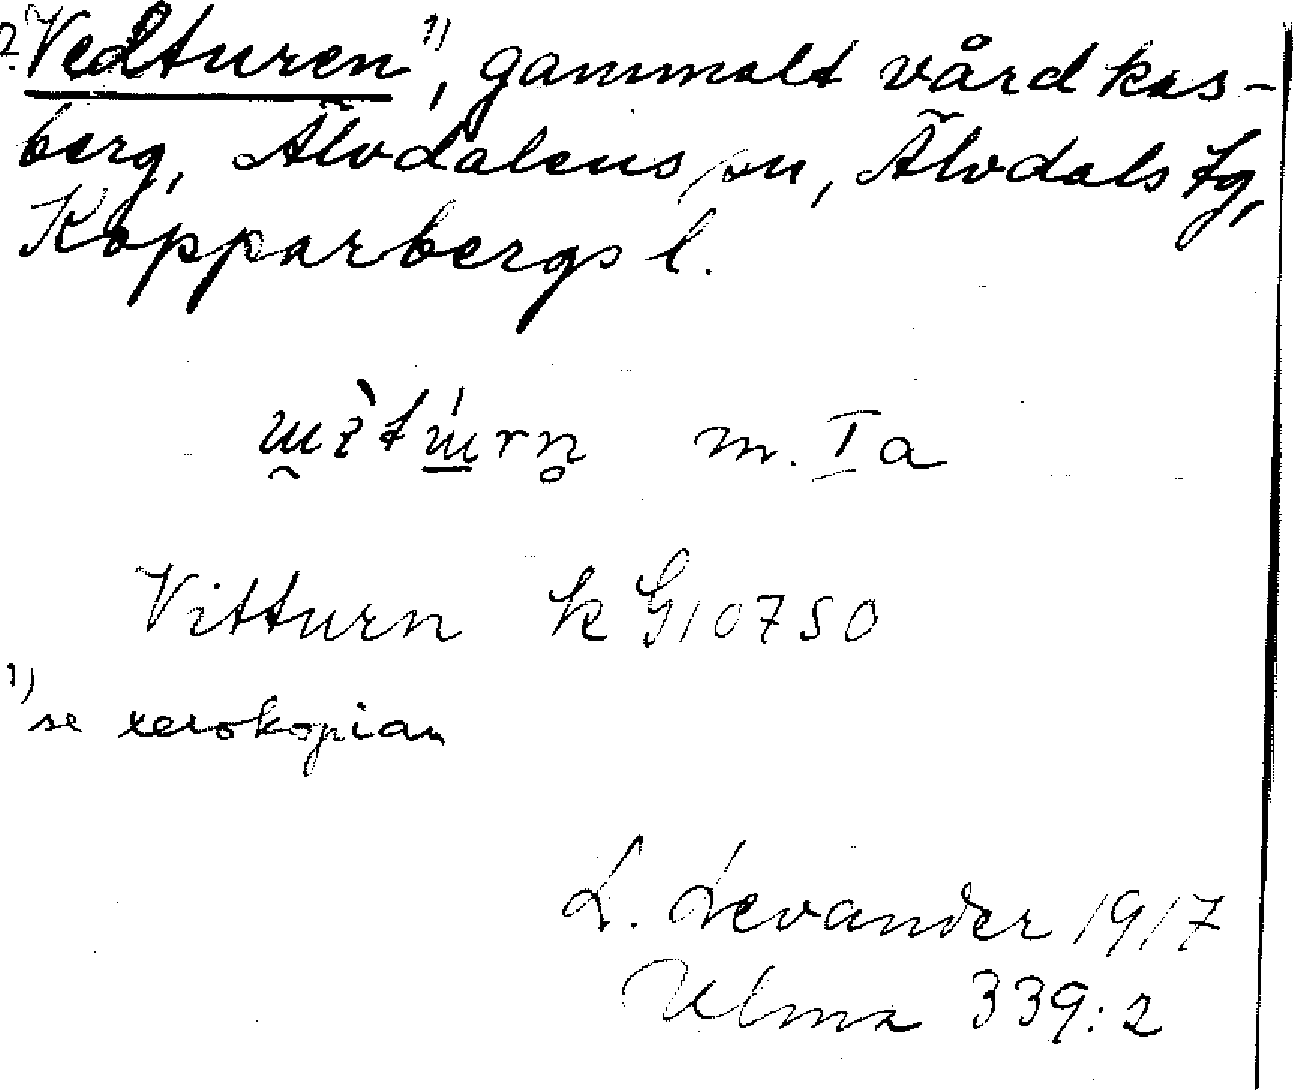 ?Vedturen¹⁾, gammalt vårdkas-
berg, Älvdalens sn, Älvdals tg,
Kopparbergs l.
m. Ia
Vitturn k G10750
¹⁾ se xerokopian
L. Levander 1917
Ulma 339:2